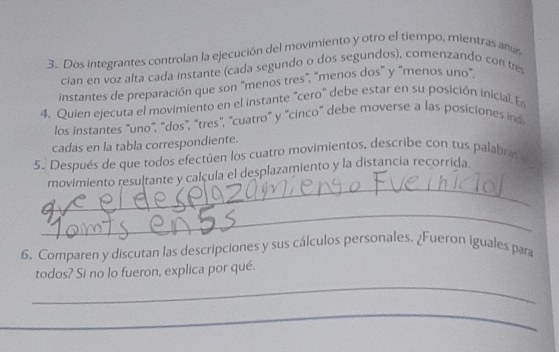 3. Dos integrantes controlan la ejecución del movimiento y otro el tiempo, mientras anun
cian en voz alta cada instante (cada segundo o dos segundos), comenzando con tres
instantes de preparación que son "menos tres", "menos dos" y "menos uno".
4. Quien ejecuta el movimiento en el instante "cero" debe estar en su posición inicial. En
los instantes "uno", "dos", "tres", "cuatro" y "cinco" debe moverse a las posiciones indi
cadas en la tabla correspondiente.
5. Después de que todos efectúen los cuatro movimientos, describe con tus palabras
movimiento resultante y calcula el desplazamiento y la distancia recorrida.
que el desplazamiengo Fue inicial
10mts en 5s
6. Comparen y discutan las descripciones y sus cálculos personales. ¿Fueron iguales para
todos? Si no lo fueron, explica por qué.